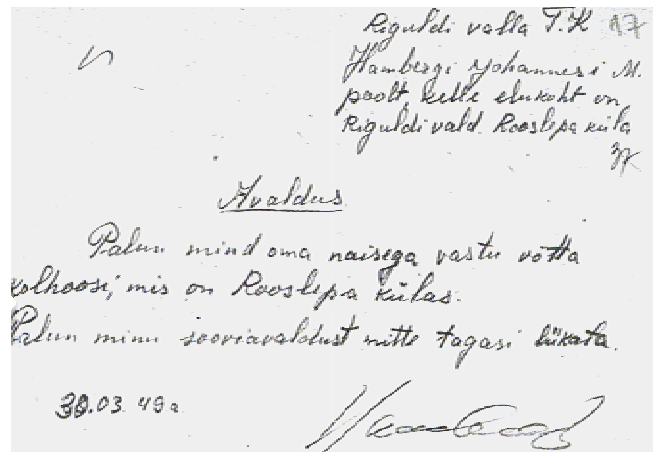 Riguldi valla T.K 17
Hambergi Johannesi M.
poolt, kelle elukoht on
Riguldi vald. Rooslepa küla
Avaldus.
Palun mind oma naisega vastu võtta
kolhoosi, mis on Rooslepa külas.
Palun minu sooviavaldust mitte tagasi lükata.
30.03.49a